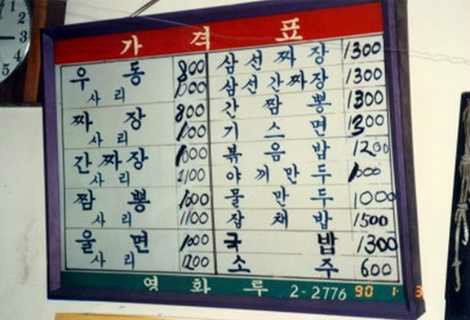 가격표
우동 800
사리 1000
짜장 800
사리 1000
간짜장 1000
사리 1100
짬뽕 1000
사리 1100
울면 1000
사리 1200
삼선짜장 1300
삼선간짜장 1300
간짬뽕 1300
기스면 1300
볶음밥 1200
야끼만두 1000
물만두 1000
잡채밥 1500
국밥 1300
소주 600
영화루 2-2776
90 1 3